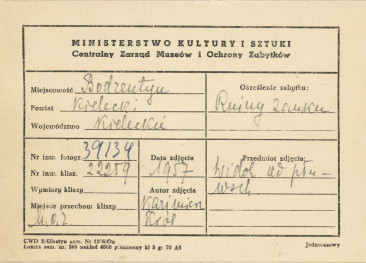 MINISTERSTWO KULTURY I SZTUKI
Centralny Zarząd Muzeów i Ochrony Zabytków
Miejscowość Bodzentyn
Powiat Kielecki
Województwo Kieleckie
Określenie zabytku:
Ruiny zamku
Nr inw. fotogr 39134
Nr inw. klisz. 22259
Wymiary kliszy
Miejsce przechow kliszy
Data zdjęcia
1957
Autor zdjęcia
Kazimierz
Król
Przedmiot zdjęcia:
widok od płn-
wsch
CWD E/Olsztyn zam. Nr
Łomża zam. nr. 385 nakład 4000 piśmienny kl 3 g: 70 A6
Jednorazowy